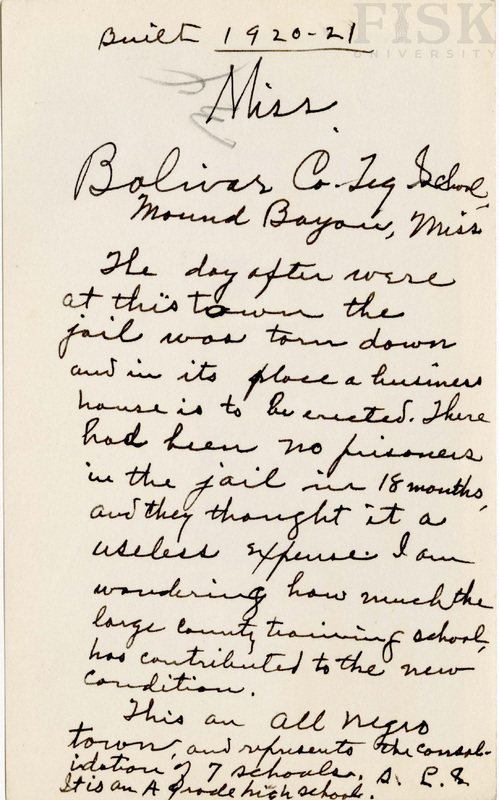 FISK
UNIVERSITY
Built 1920-21
Miss.
Bolivar Co. Trg School,
Mound Bayou, Miss
The day after were
at this town the
jail was torn down
and in its place a business
house is to be erected. There
had been no prisoners
in the jail in 18 months,
and they thought it a
useless expense. I am
wondering how much the
large county training school,
has contributed to the new
condition.
This an all negro
town, and represents the consol-
idation of 7 schools. S. L. S
It is an A grade high school.